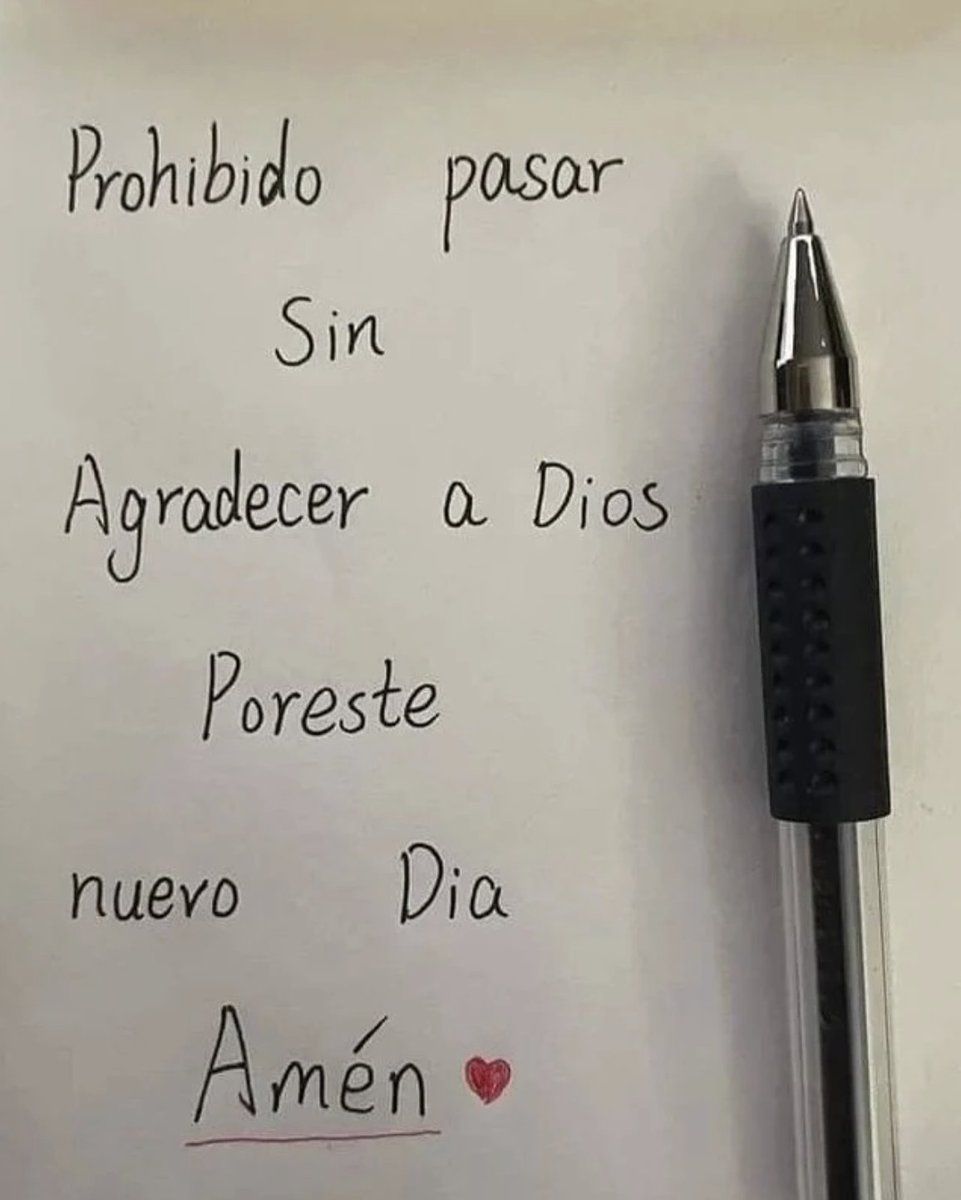 Prohibido pasar
Sin
Agradecer a Dios
Poreste
nuevo Dia
Amén